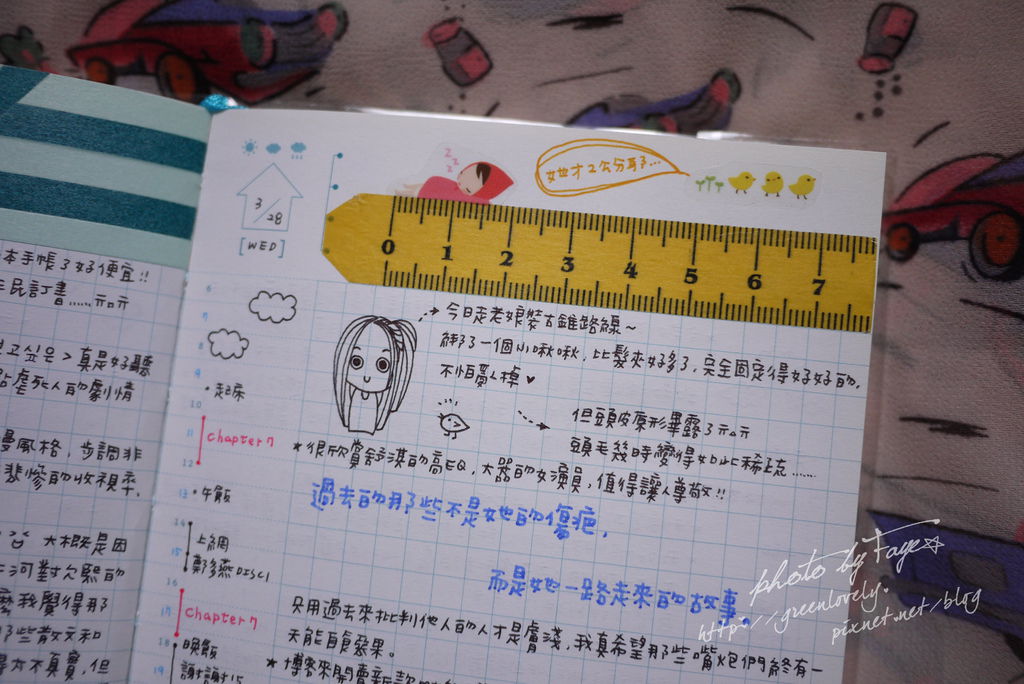 本手帳了好便宜!!
真是好聽
的劇情
風格,步調非
悲慘的收視率.
大概是因
我覺得那
些散文和
不真實,但
3/28
[WED]
z z z
她才2公分耶了...
0 1 2 3 4 5 6 7
今日走老娘裝古錐路線~
綁了一個小啾啾,比髮夾好多了,完全固定得好好的.
不怕夢人掉♥
但頭皮原形畢露了
頭毛幾時變得如此稀疏......
6
7
8
9
•起床
10
11
Chapter 7
12
★很欣賞舒淇的高EQ,大器的女演員,值得讓人尊敬!!
13 •午飯
過去的那些不是她的傷疤,
14
上網
15
鄭多燕DISC1
而是她一路走來的故事.
16
17 Chapter 7
只用過去來批判他人的人才是膚淺,我真希望那些嘴炮們能有一
天能自食惡果.
18 •晚飯
19
★博客來開賣新款
photo by Faye☆
http://greenlovely.
pixnet.net/blog